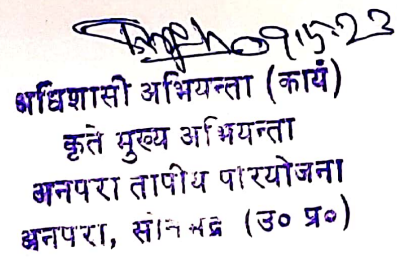 09.5.23
अधिशासी अभियन्ता (कार्य)
कृते मुख्य अभियन्ता
अनपरा तापीय परियोजना
अनपरा, सोनभद्र (उ० प्र०)